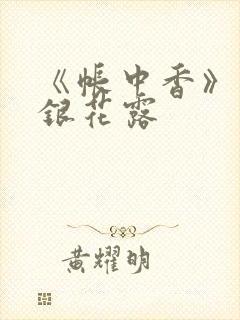 《帐中香》
银花露
黄耀明